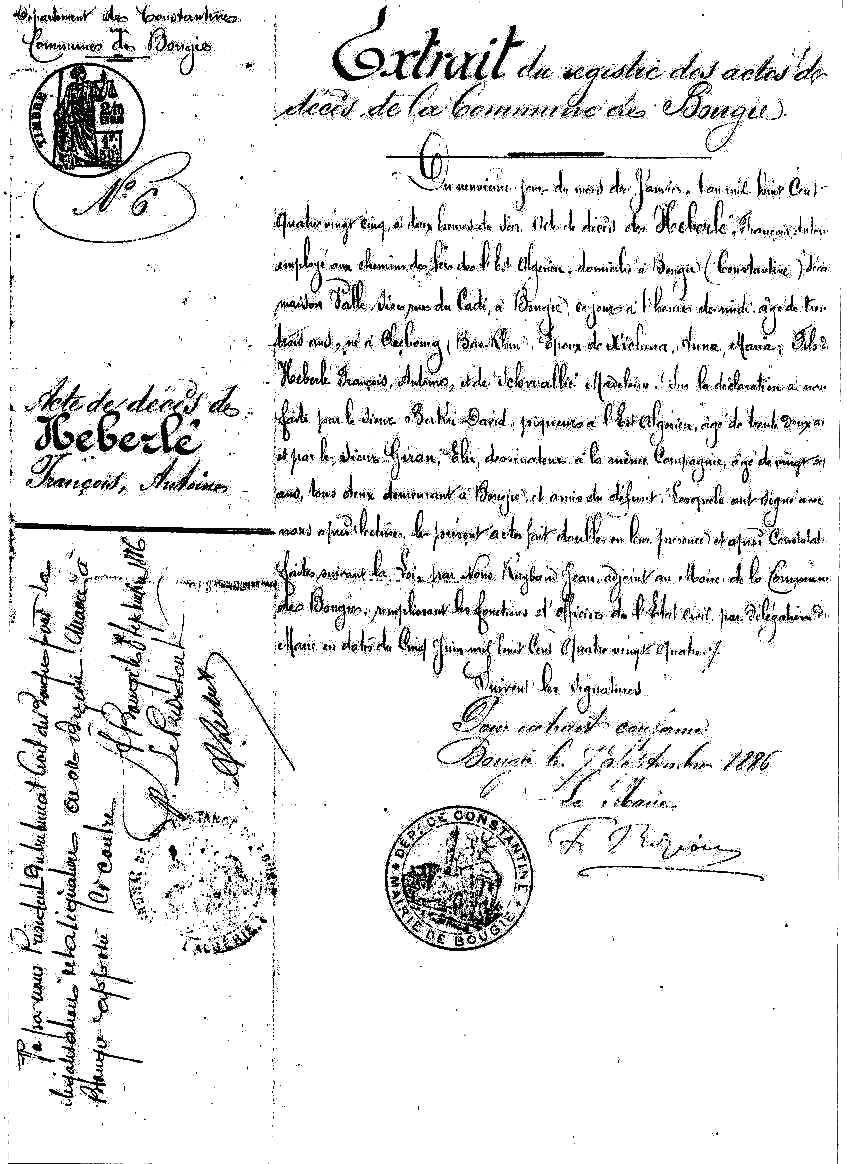 Département de Constantine
Commune de Bougie
TIMBRE
Nº 6
Acte de décès de
Heberlé
François, Antoine
Extrait du registre des actes de
décès de la Commune de Bougie.
Du neuvième jour du mois de Janvier, l'an mil huit Cent
quatre vingt cinq, à deux heures du soir. Acte de décès de Heberlé, François, Antoine
employé aux chemins de fer de l'Est Algérien, domicilié à Bougie (Constantine)
maison Valle, sise rue du Cadi, à Bougie, ce jour à l'heure de midi, âgé de
trois ans, né à Époux de Anna, Maria, fils de
Heberlé François, Antoine, et de Madeleine. Sur la déclaration à nous
faite par le sieur David, piqueur à l'Est Algérien, âgé de trente deux
et par le sieur Giran, Elie, dessinateur à la même Compagnie, âgé de vingt
ans, tous deux demeurant à Bougie, et amis du défunt. Lesquels ont signé avec
nous après lecture, le présent acte fait double en leur présence et après Constatat
faite suivant la Loi, par Nous Jean, adjoint au Maire de la Commune
de Bougie, remplissant les fonctions d'officier de l'État civil par délégation du
Maire en date du Cinq Juin mil huit Cent quatre vingt quatre.
Suivent les signatures
Pour extrait conforme
Bougie le 7 septembre 1886
Le Maire
DÉP. DE CONSTANTINE
MAIRIE DE BOUGIE
Vu par nous Président du Tribunal Civil de Bougie pour la
légalisation de la signature de
Bougie apposée ci contre
Bougie le septembre 1886
Le Président
ALGÉRIE